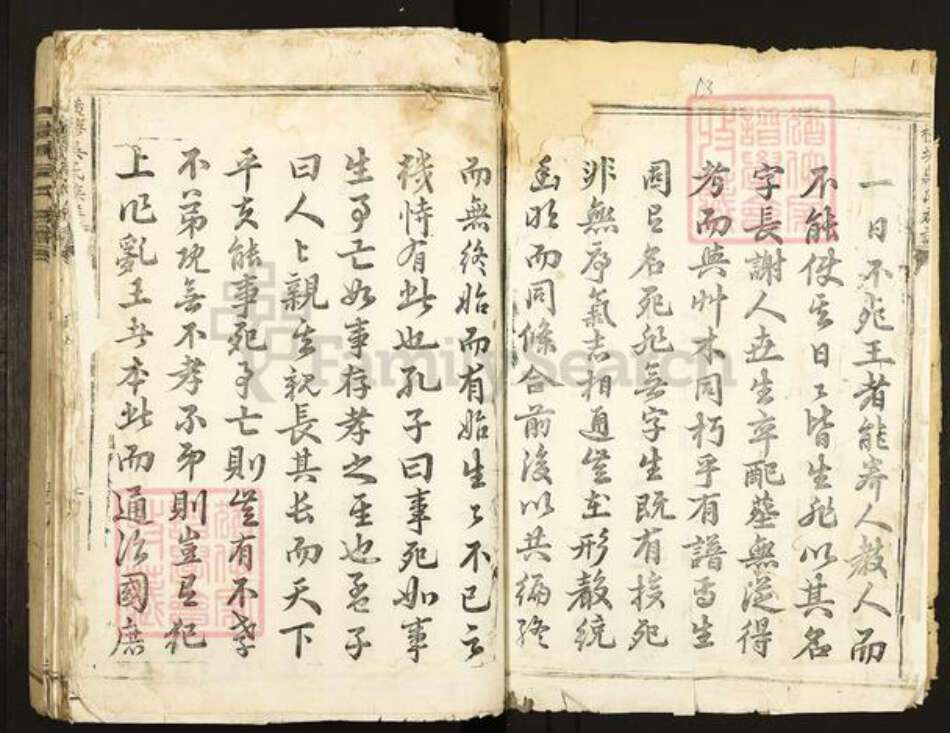 一日不死王者能齊人教人而
不能使之日日皆生死以其名
字長謝人世生卒配墓無從得
考而與艸木同朽乎有譜焉生
固有名死死無字生既有族死
非無序氣志相通豈在形骸統
幽明而同條合前後以共編終
而無終始而有始生生不已之
機恃有此也孔子曰事死如事
生事亡如事存孝之至也孟子
曰人人親其親長其長而天下
平夫能事死事亡則豈有不孝
不弟既無不孝不弟則豈有犯
上作亂王者本此而通治國
13
FamilySearch